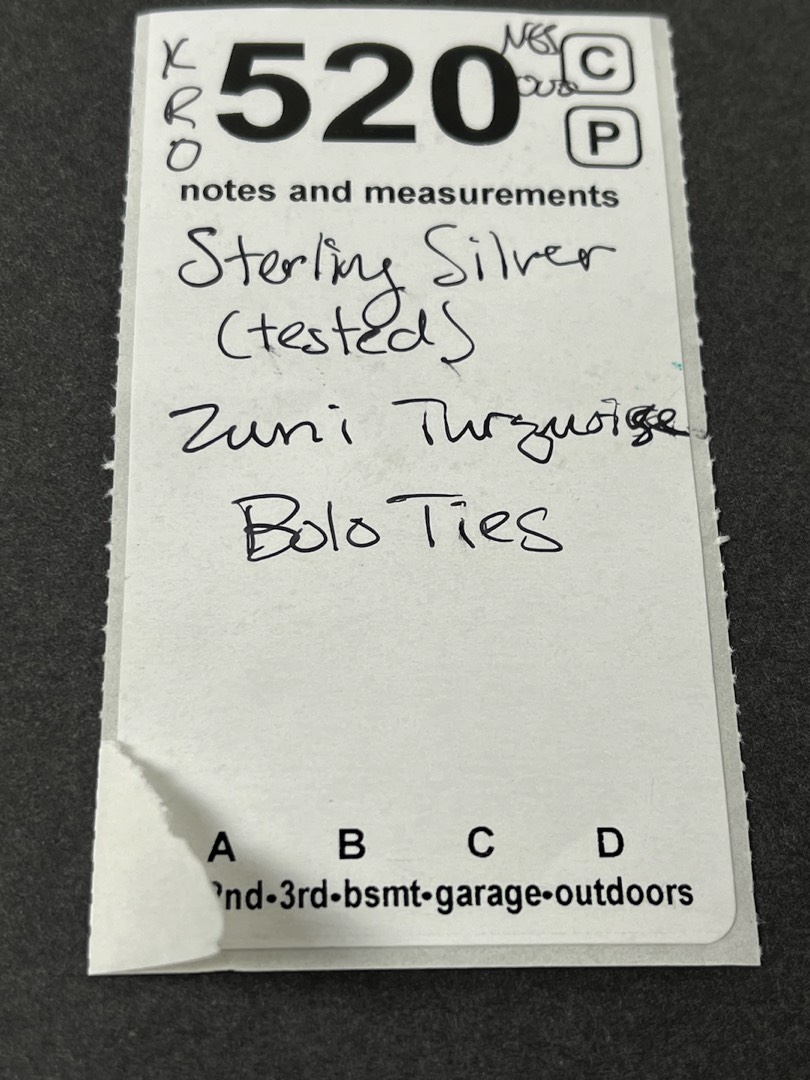 K
R
O
520
C
P
notes and measurements
Sterling Silver
(tested)
Zuni Turquoise
Bolo Ties
A B C D
2nd•3rd•bsmt•garage•outdoors